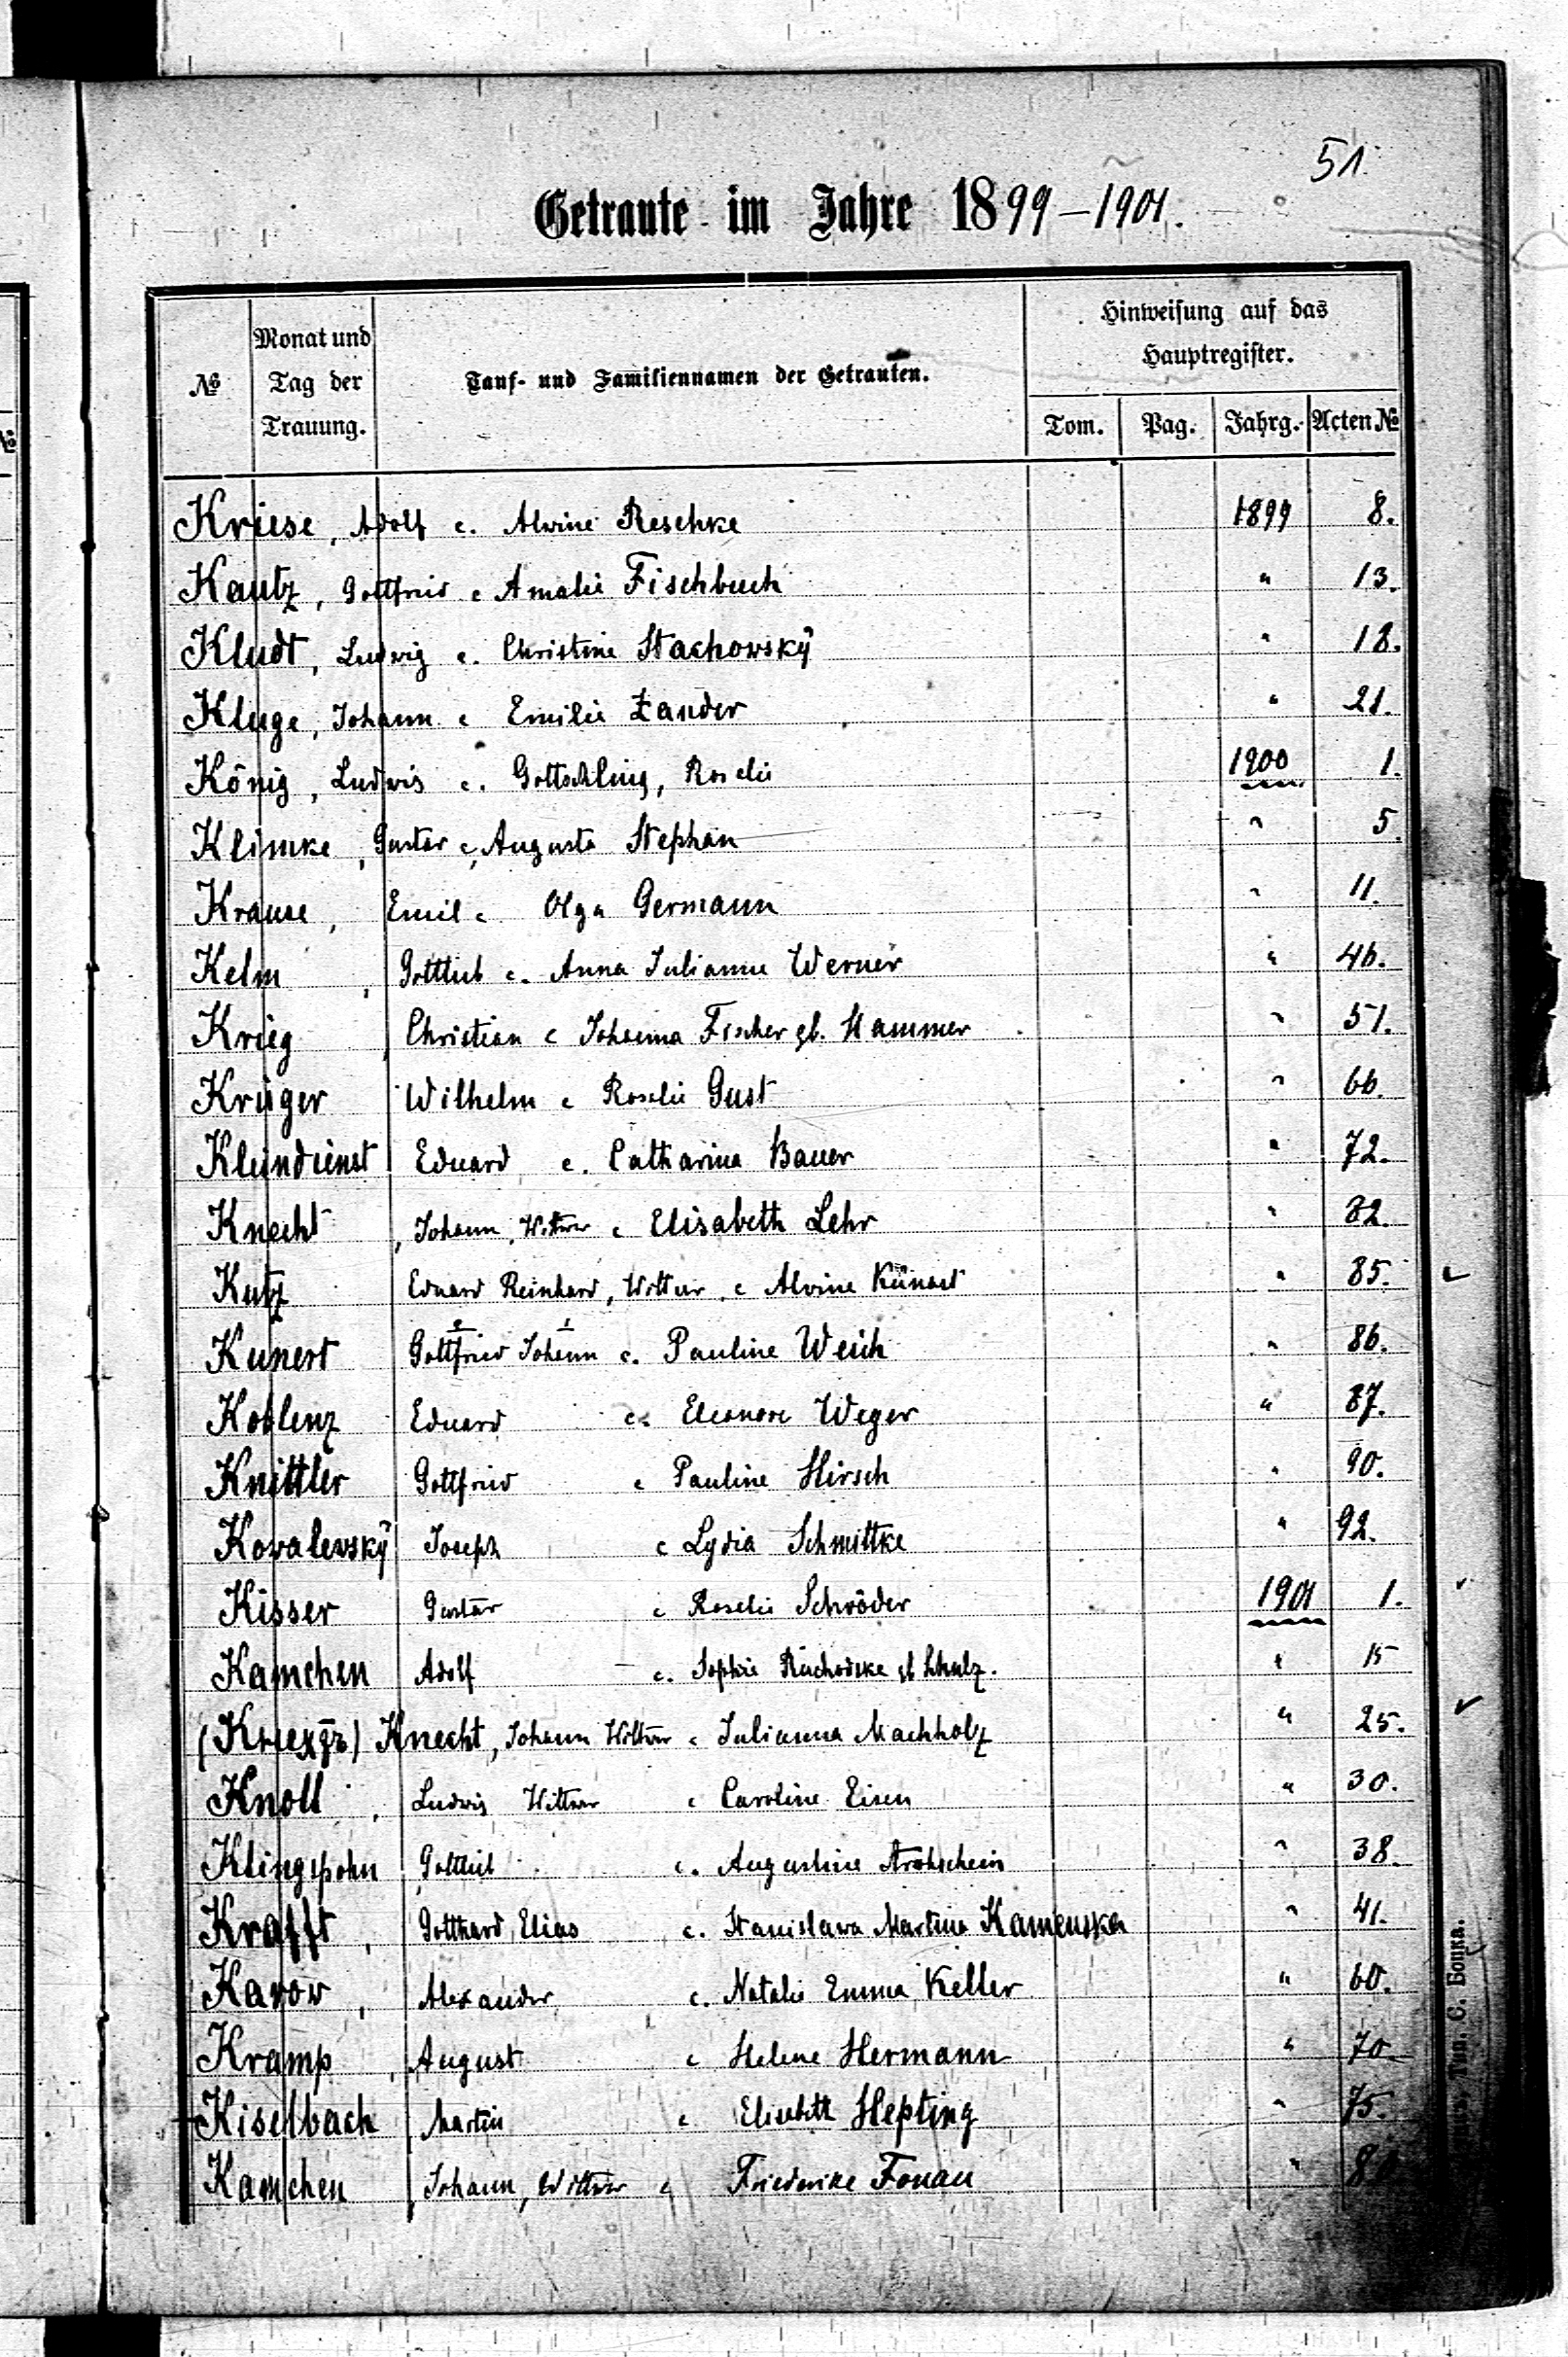 51.
Getraute im Jahre 1899-1901.
№ Monat und Tag der Trauung. Tauf- und Familiennamen der Getrauten. Hinweisung auf das Hauptregister.
Tom. Pag. Jahrg. Acten №
Kriese, Adolf c. Alvine Reschke 1899 8.
Kautz, Gottfried c Amalie Fischbuch " 13.
Kludt, Ludwig c. Christine Stachowskÿ " 18.
Kluge, Johann c Emilie Zander " 21.
König, Ludwig c. Gottschling, Rosalie 1900 1.
Klimke, Gustav c. Auguste Stephan " 5.
Krause, Emil c Olga Germann " 11.
Kelm, Gottlieb c. Anna Julianne Werner " 46.
Krieg, Christian c Johanna Fischer gb. Hammer " 51.
Krüger Wilhelm c Rosalie Gust " 66.
Kleindienst Eduard c. Catharina Bauer " 72.
Knecht, Johann, Wittwer c Elisabeth Lehr " 82.
Kutz Eduard Reinhard, Wittwer, c Alvine " 85.
Kunert Gottfried Johann c. Pauline Weich " 86.
Koblenz Eduard c. Eleonore Weger " 87.
Knittler Gottfried c Pauline Hirsch " 90.
Kowalewskÿ Joseph c Lydia Schmittke " 92.
Kisser Gustav c Rosalie Schröder 1901 1.
Kamchen Adolf c. Sophie gb Schulz. " 15
(Кнехтъ) Knecht, Johann Wittwer c Julianna Machholz " 25.
Knoll, Ludwig Wittwer c Caroline Eisen " 30.
Klingspohn Gottlieb c. Augustine " 38.
Krafft, Gotthard Elias c. Stanislawa Martina Kamenska " 41.
Karow, Alexander c. Natalie Emma Keller " 60.
Kramp, August c Helene Hermann " 70
Kiselbach Martin c Elisabeth Hepting " 75.
Kamchen Johann, Wittwer c Friederike Fonau "
Тип. С. Боцка.